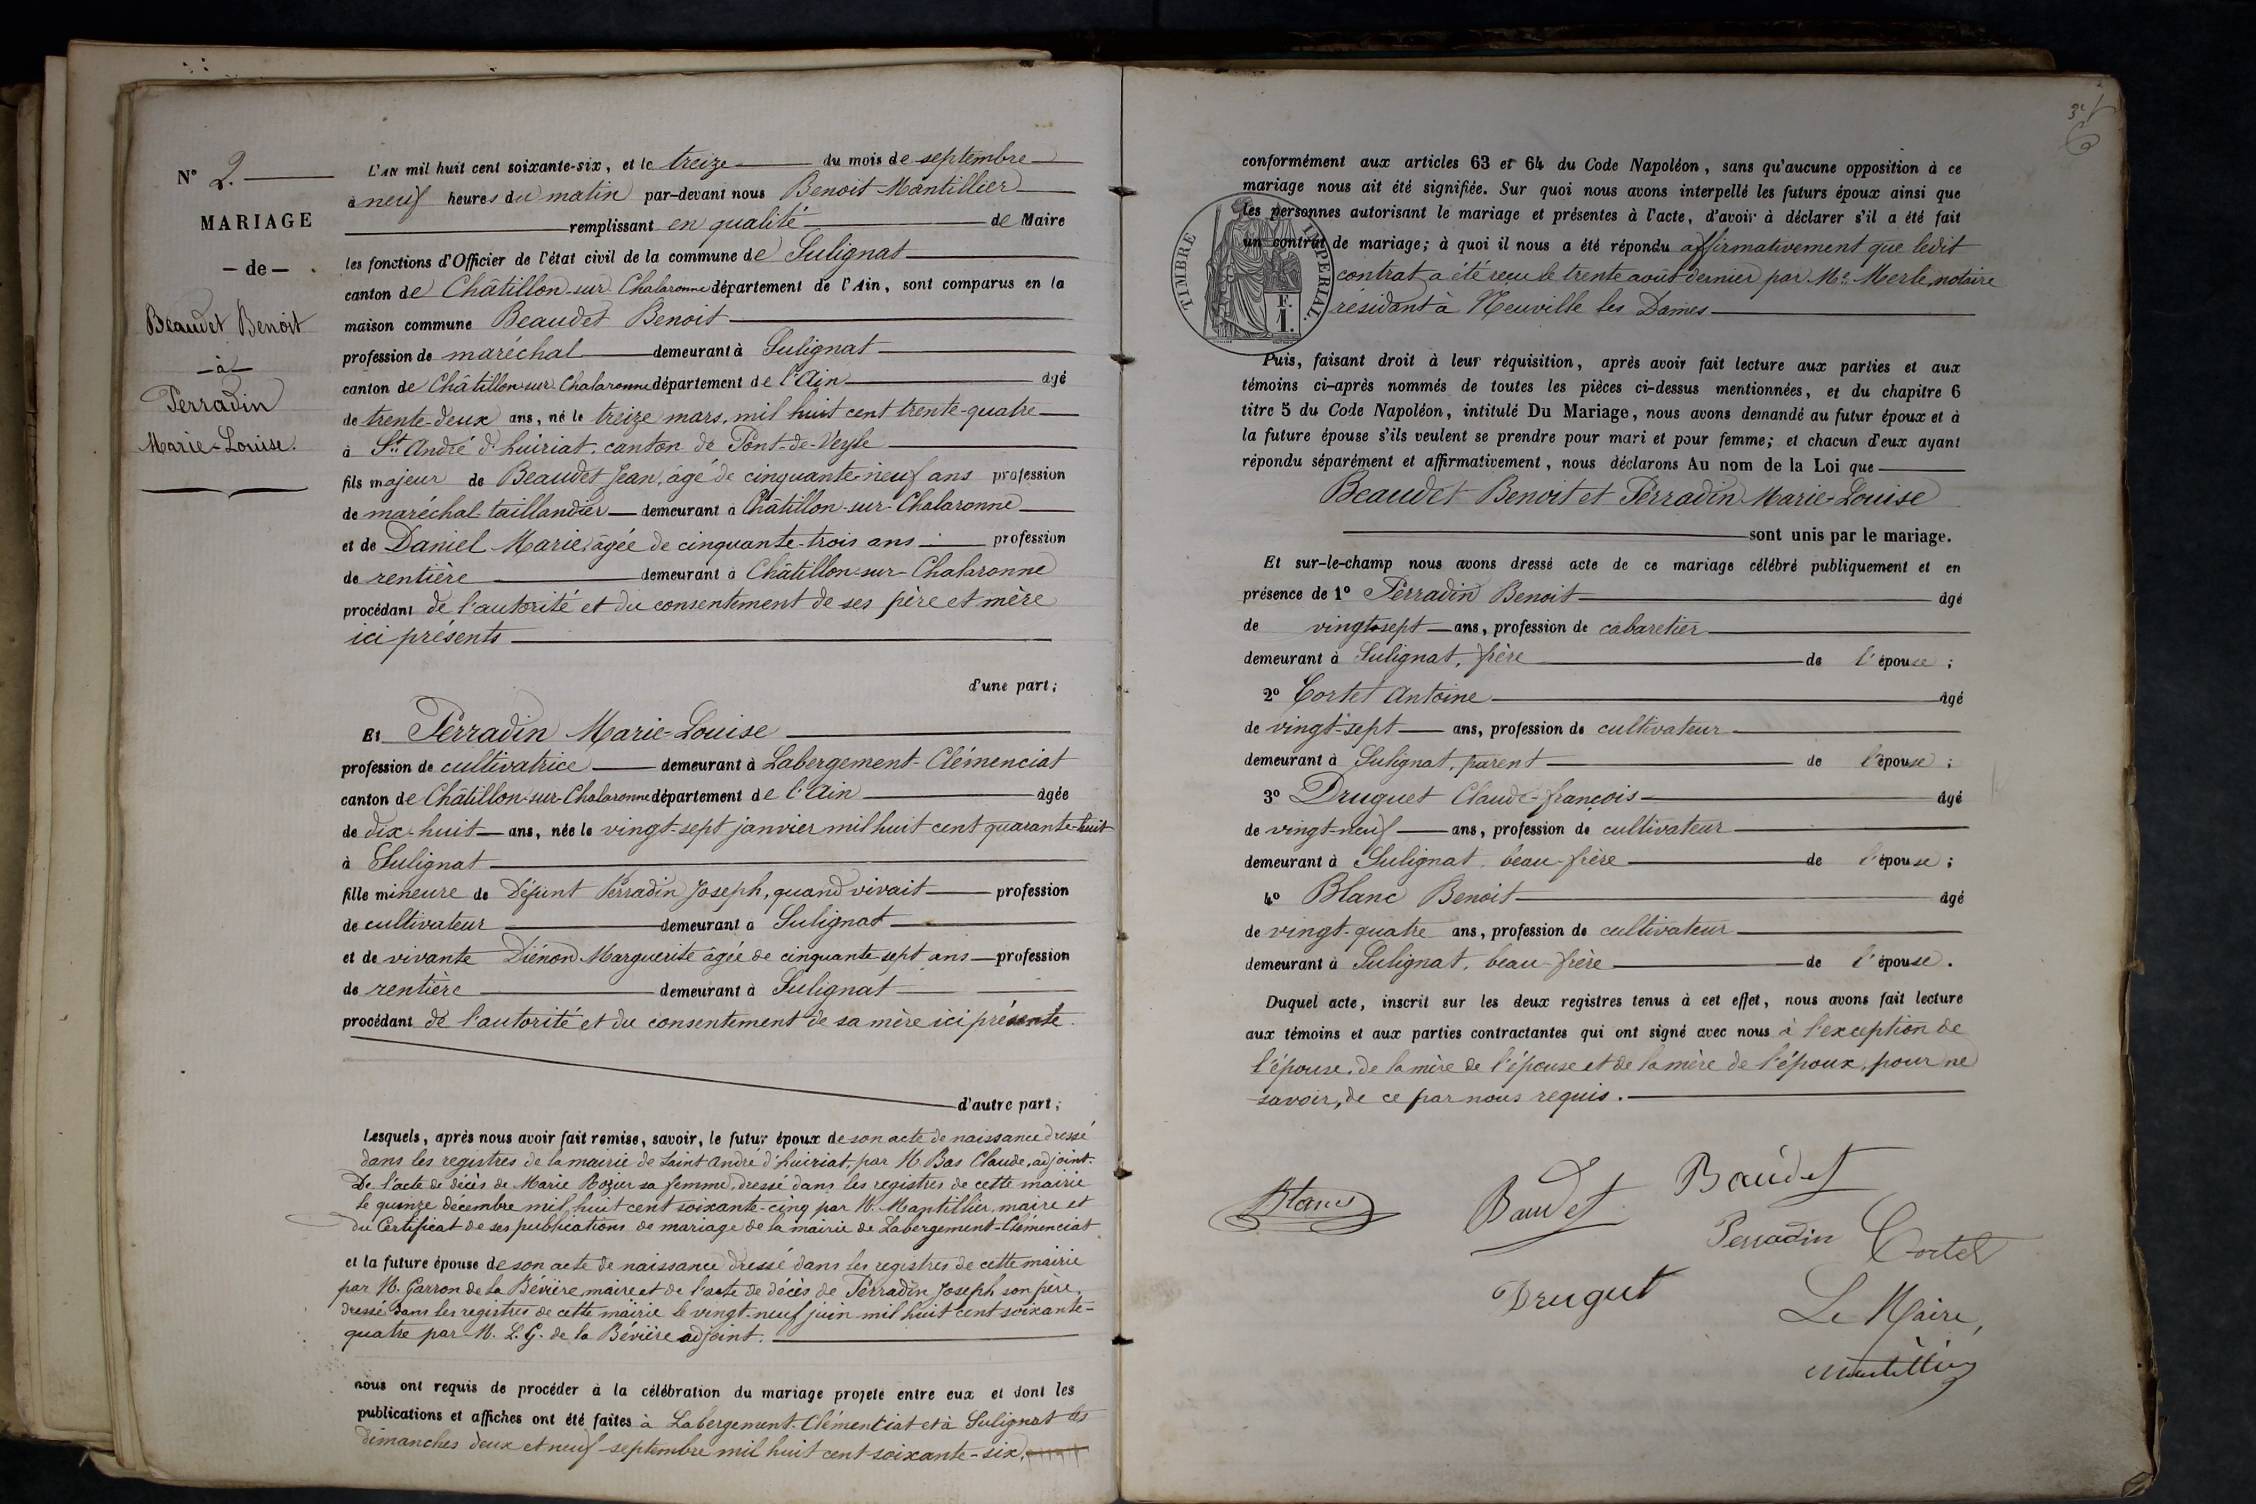 N° 2.
MARIAGE
- de -
Beaudet Benoit
- à -
Perradin
Marie-Louise.
L'AN mil huit cent soixante-six, et le treize du mois de septembre
à neuf heures du matin par-devant nous Benoit Mantillier
remplissant en qualité de Maire
les fonctions d'Officier de l'état civil de la commune de Sulignat
canton de Châtillon-sur-Chalaronne département de l'Ain, sont comparus en la
maison commune Beaudet Benoit
profession de maréchal demeurant à Sulignat
canton de Châtillon-sur-Chalaronne département de l'Ain âgé
de trente-deux ans, né le treize mars, mil huit cent trente-quatre
à St. André d'huiriat, canton de Pont-de-Veyle
fils majeur de Beaudet Jean, âgé de cinquante-neuf ans profession
de maréchal-taillandier demeurant à Châtillon-sur-Chalaronne
et de Daniel Marie, âgée de cinquante-trois ans profession
de rentière demeurant à Châtillon-sur-Chalaronne
procédant de l'autorité et du consentement de ses père et mère
ici présents
d'une part;
Et Perradin Marie-Louise
profession de cultivatrice demeurant à Labergement-Clémenciat
canton de Châtillon-sur-Chalaronne département de l'Ain âgée
de dix-huit ans, née le vingt-sept janvier mil huit cent quarante-huit
à Sulignat
fille mineure de Défunt Perradin Joseph, quand vivait profession
de cultivateur demeurant à Sulignat
et de vivante Diénon Marguerite âgée de cinquante sept ans profession
de rentière demeurant à Sulignat
procédant de l'autorité et du consentement de sa mère ici présente.
d'autre part;
Lesquels, après nous avoir fait remise, savoir, le futur époux de son acte de naissance dressé
dans les registres de la mairie de Saint André d'huiriat, par M. Bas Claude, adjoint.
De l'acte de décès de Marie Rozier sa femme, dressé dans les registres de cette mairie
le quinze décembre mil huit cent soixante-cinq par M. Mantillier, maire et
du Certificat de ses publications de mariage de la mairie de Labergement-Clémenciat
et la future épouse de son acte de naissance dressé dans les registres de cette mairie
par M. Garron de la Bévière maire et de l'acte de décès de Perradin Joseph son père,
dressé dans les registres de cette mairie le vingt-neuf juin mil huit cent soixante-
quatre par M. L. G. de la Bévière adjoint.
nous ont requis de procéder à la célébration du mariage projeté entre eux et dont les
publications et affiches ont été faites à Labergement-Clémentiat et à Sulignat les
dimanches deux et neuf septembre mil huit cent soixante-six,
conformément aux articles 63 et 64 du Code Napoléon, sans qu'aucune opposition à ce
mariage nous ait été signifiée. Sur quoi nous avons interpellé les futurs époux ainsi que
les personnes autorisant le mariage et présentes à l'acte, d'avoir à déclarer s'il a été fait
un contrat de mariage; à quoi il nous a été répondu affirmativement que ledit
contrat a été reçu le trente août dernier par Me. Merle, notaire
résidant à Neuville les Dames
TIMBRE IMPERIAL
F.
1.
Puis, faisant droit à leur réquisition, après avoir fait lecture aux parties et aux
témoins ci-après nommés de toutes les pièces ci-dessus mentionnées, et du chapitre 6
titre 5 du Code Napoléon, intitulé Du Mariage, nous avons demandé au futur époux et à
la future épouse s'ils veulent se prendre pour mari et pour femme; et chacun d'eux ayant
répondu séparément et affirmativement, nous déclarons Au nom de la Loi que
Beaudet Benoit et Perradin Marie-Louise
sont unis par le mariage.
Et sur-le-champ nous avons dressé acte de ce mariage célébré publiquement et en
présence de 1° Perradin Benoit âgé
de vingt-sept ans, profession de cabaretier
demeurant à Sulignat, frère de l'épouse;
2° Cortet Antoine âgé
de vingt-sept ans, profession de cultivateur
demeurant à Sulignat, parent de l'épouse;
3° Druguet Claude-françois âgé
de vingt-neuf ans, profession de cultivateur
demeurant à Sulignat, beau-frère de l'épouse;
4° Blanc Benoit âgé
de vingt-quatre ans, profession de cultivateur
demeurant à Sulignat, beau-frère de l'épouse.
Duquel acte, inscrit sur les deux registres tenus à cet effet, nous avons fait lecture
aux témoins et aux parties contractantes qui ont signé avec nous à l'exception de
l'épouse, de la mère de l'épouse et de la mère de l'époux, pour ne
savoir, de ce par nous requis.
Blanc Baudet Baudet
Perradin Cortet
Drugut Le Maire,
Mantillier